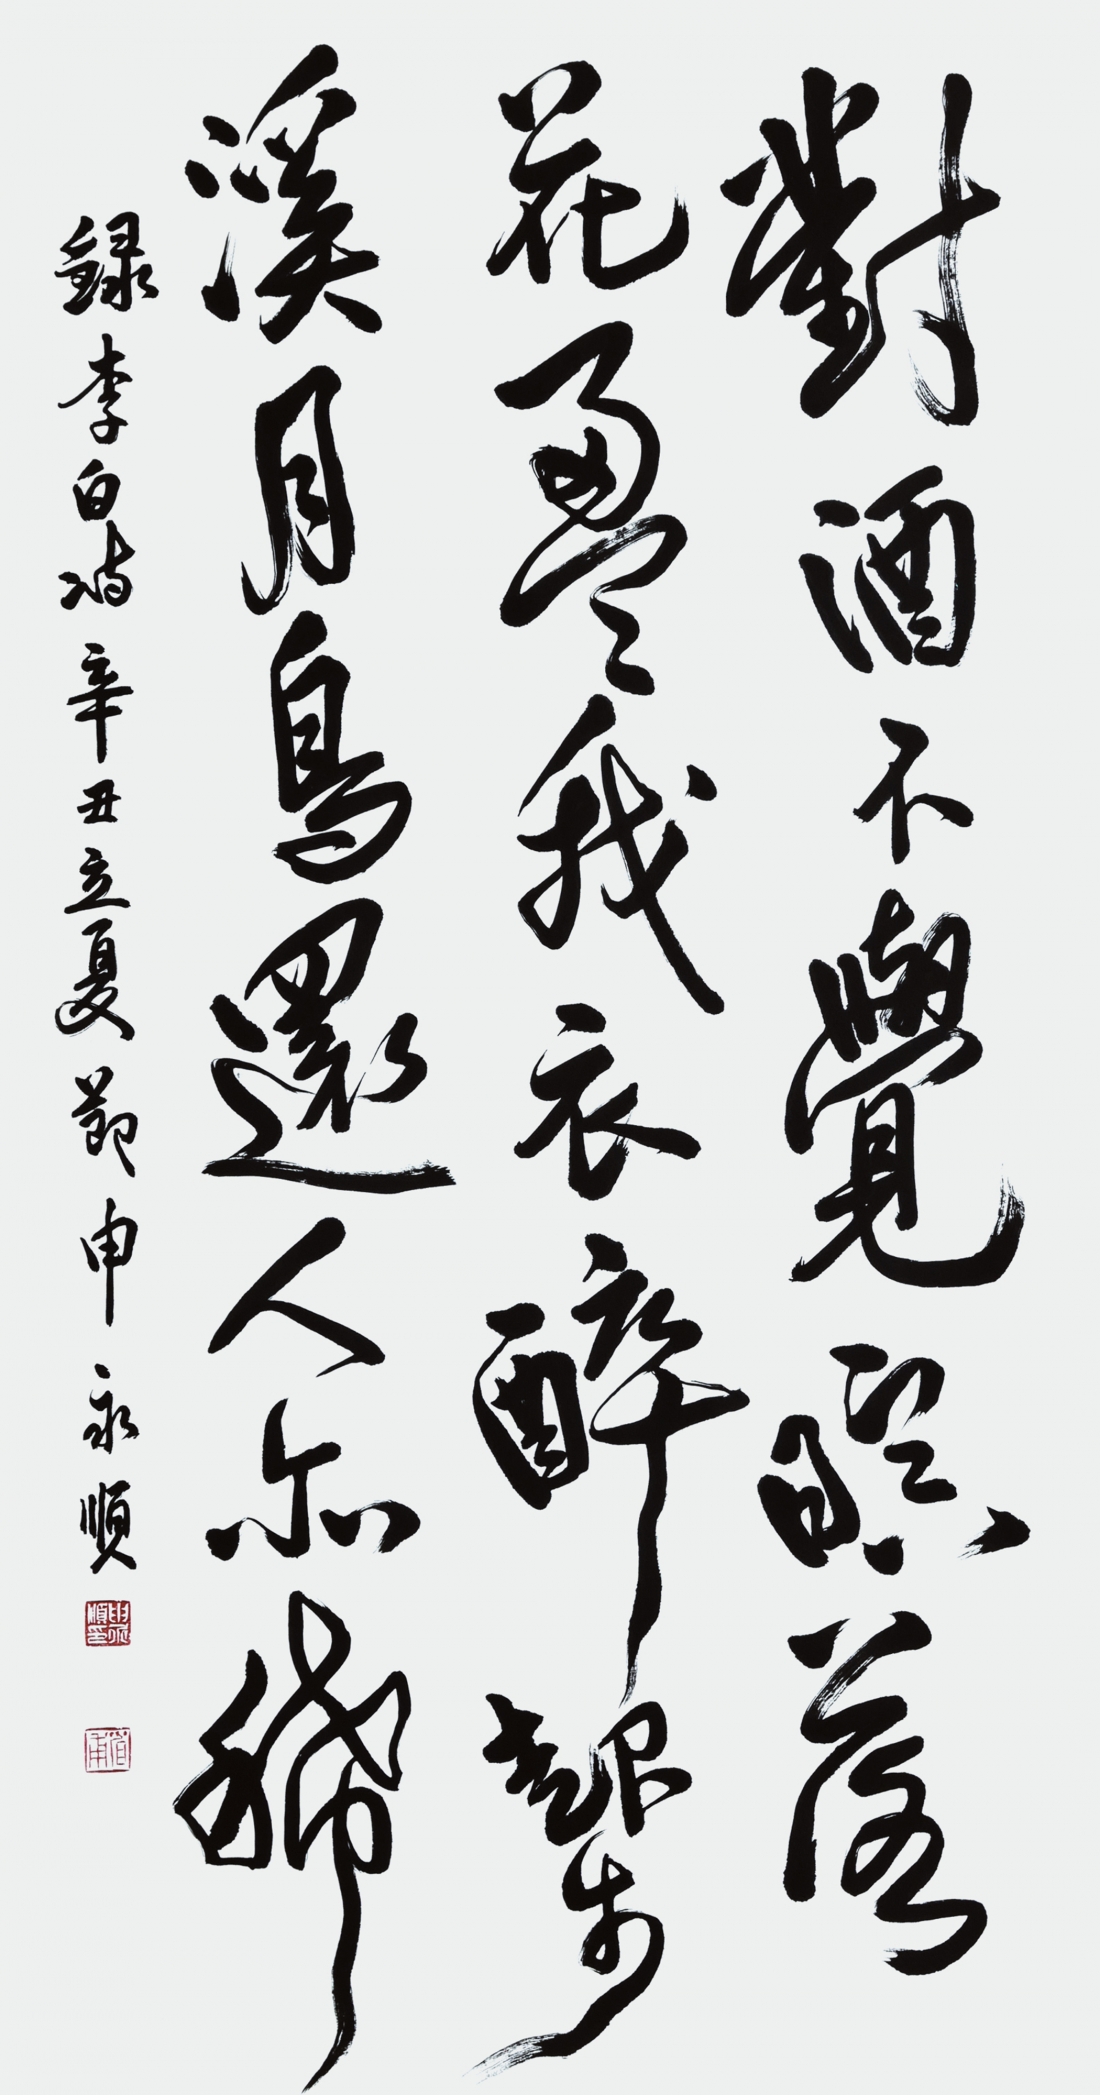 對酒不覺暝落
花盈我衣醉起步
溪月鳥還人亦稀
録李白詩辛丑立夏節申永順
申永順印